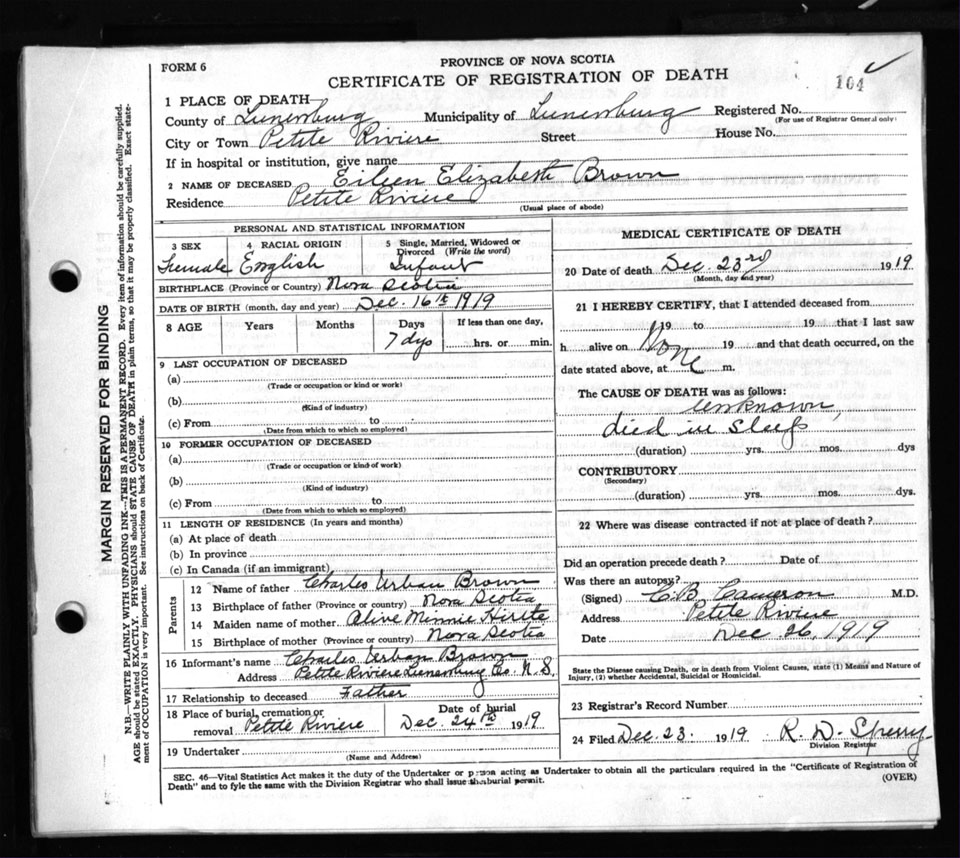 FORM 6
PROVINCE OF NOVA SCOTIA
CERTIFICATE OF REGISTRATION OF DEATH
104
1 PLACE OF DEATH
County of Lunenburg Municipality of Lunenburg Registered No.
(For use of Registrar General only)
City or Town Petite Riviere Street House No.
If in hospital or institution, give name
2 NAME OF DECEASED Eileen Elizabeth Brown
Residence Petite Riviere
(Usual place of abode)
PERSONAL AND STATISTICAL INFORMATION
3 SEX Female
4 RACIAL ORIGIN English
5 Single, Married, Widowed or Divorced (Write the word) Infant
BIRTHPLACE (Province or Country) Nova Scotia
DATE OF BIRTH (month, day and year) Dec. 16th 1919
8 AGE Years Months Days If less than one day,
7 dys hrs. or min.
9 LAST OCCUPATION OF DECEASED
(a)
(Trade or occupation or kind or work)
(b)
(Kind of industry)
(c) From to
(Date from which to which so employed)
10 FORMER OCCUPATION OF DECEASED
(a)
(Trade or occupation or kind of work)
(b)
(Kind of industry)
(c) From to
(Date from which to which so employed)
11 LENGTH OF RESIDENCE (In years and months)
(a) At place of death
(b) In province
(c) In Canada (if an immigrant)
Parents
12 Name of father Charles Urban Brown
13 Birthplace of father (Province or country) Nova Scotia
14 Maiden name of mother Olive Minnie
15 Birthplace of mother (Province or country) Nova Scotia
16 Informant's name Charles Urban Brown
Address Petite Riviere Lunenburg Co. N.S.
17 Relationship to deceased Father
18 Place of burial, cremation or removal Petite Riviere
Date of burial
Dec. 24th 1919
19 Undertaker
(Name and Address)
MEDICAL CERTIFICATE OF DEATH
20 Date of death Dec. 23rd 1919
(Month, day and year)
21 I HEREBY CERTIFY, that I attended deceased from
19 to 19 that I last saw
h alive on None 19 and that death occurred, on the
date stated above, at m.
The CAUSE OF DEATH was as follows:
Unknown,
died in sleep
(duration) yrs. mos. dys
CONTRIBUTORY
(Secondary)
(duration) yrs. mos. dys.
22 Where was disease contracted if not at place of death?
Did an operation precede death? Date of
Was there an autopsy?
(Signed) C.B. Cameron M.D.
Address Petite Riviere
Date Dec 26, 1919
State the Disease causing Death, or in death from Violent Causes, state (1) Means and Nature of
Injury, (2) whether Accidental, Suicidal or Homicidal.
23 Registrar's Record Number
24 Filed Dec. 23. 1919 R. D. Sperry
Division Registrar
SEC. 46—Vital Statistics Act makes it the duty of the Undertaker or person acting as Undertaker to obtain all the particulars required in the "Certificate of Registration of
Death" and to fyle the same with the Division Registrar who shall issue the burial permit.
(OVER)
MARGIN RESERVED FOR BINDING
N.B.—WRITE PLAINLY WITH UNFADING INK—THIS IS A PERMANENT RECORD. Every item of information should be carefully supplied.
AGE should be stated EXACTLY. PHYSICIANS should STATE CAUSE OF DEATH in plain terms, so that it may be properly classified. Exact state-
ment of OCCUPATION is very important. See instructions on back of Certificate.